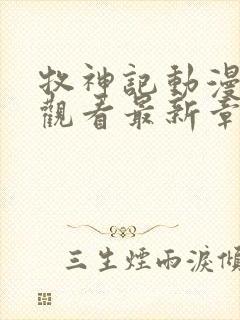 牧神記動漫
觀看最新章
三生煙雨淚傾